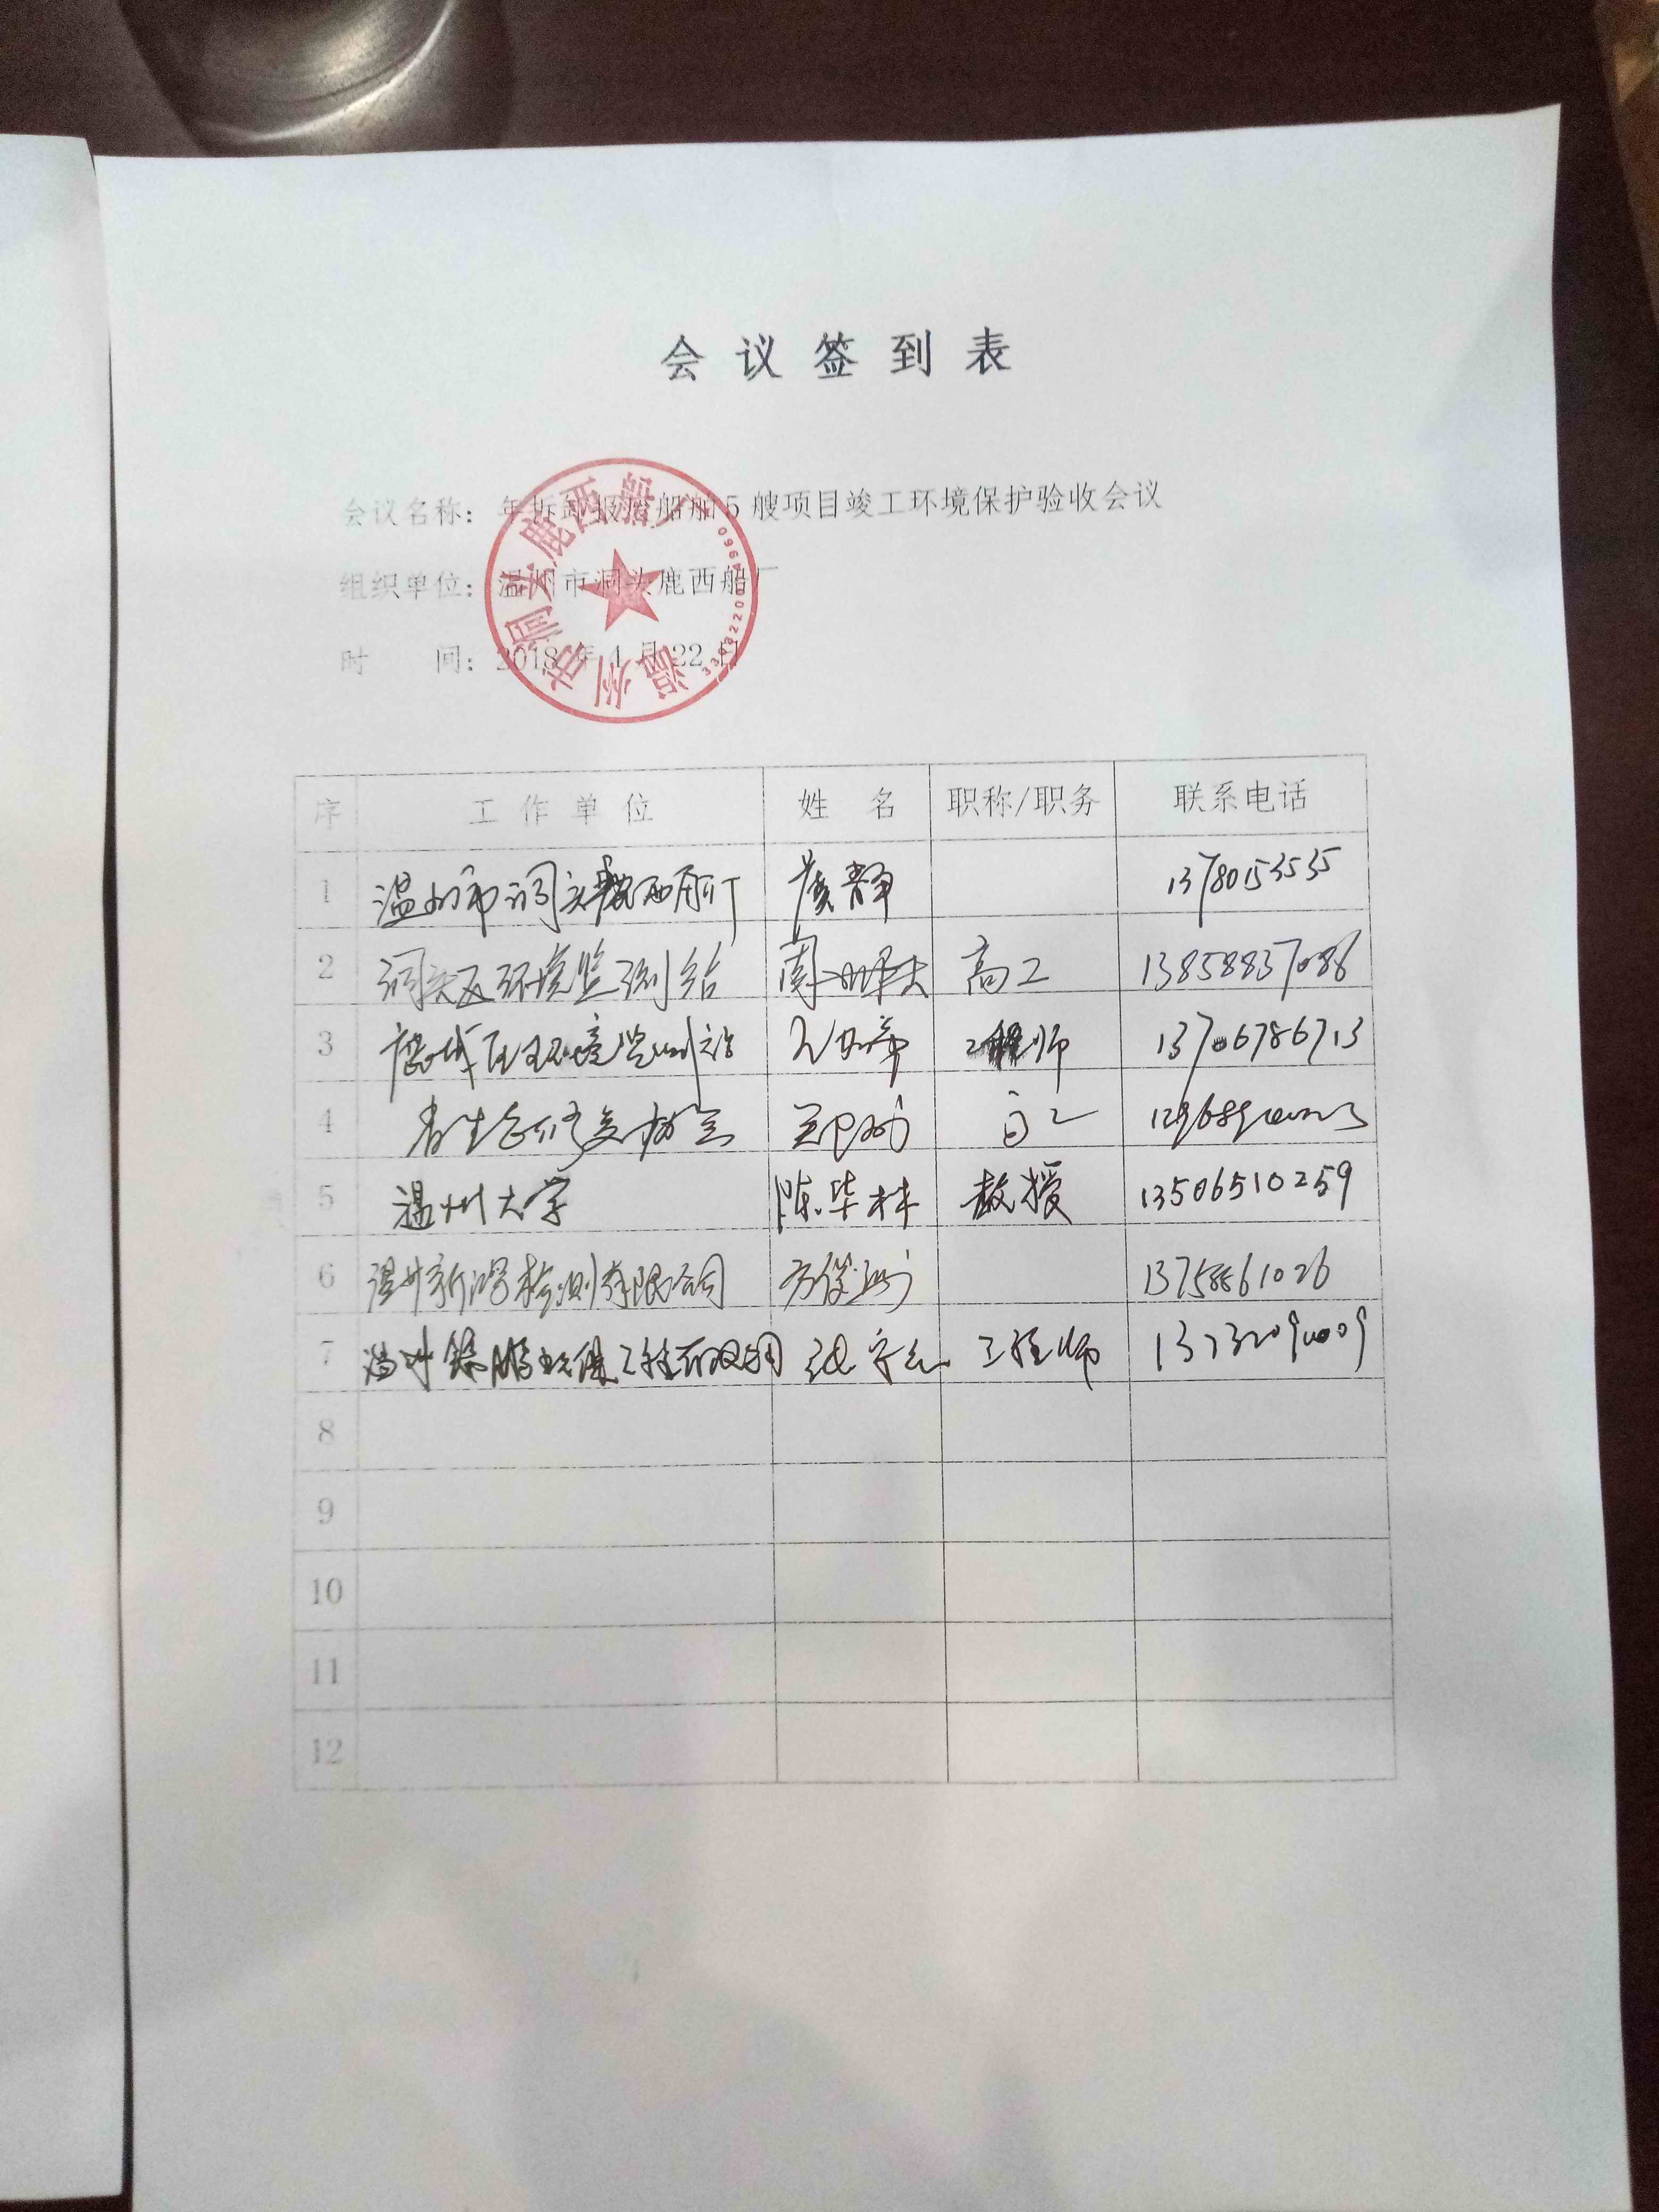 会议签到表
会议名称：年拆卸报废船舶5艘项目竣工环境保护验收会议
组织单位：温州市洞头鹿西船厂
时 间：2018年4月22日
温州市洞头鹿西船厂
序 工作单位 姓 名 职称/职务 联系电话
1 温州市洞头鹿西船厂 静 13780153535
2 洞头区环境监测站 高工 13858837086
3 鹿城区环境监测站 工程师 13706786713
4 省生态修复协会 高工
5 温州大学 陈华林 教授 13506510259
6 温州新鸿检测有限公司 13758861026
7 温州 环保工程有限公司 张守 工程师
8
9
10
11
12